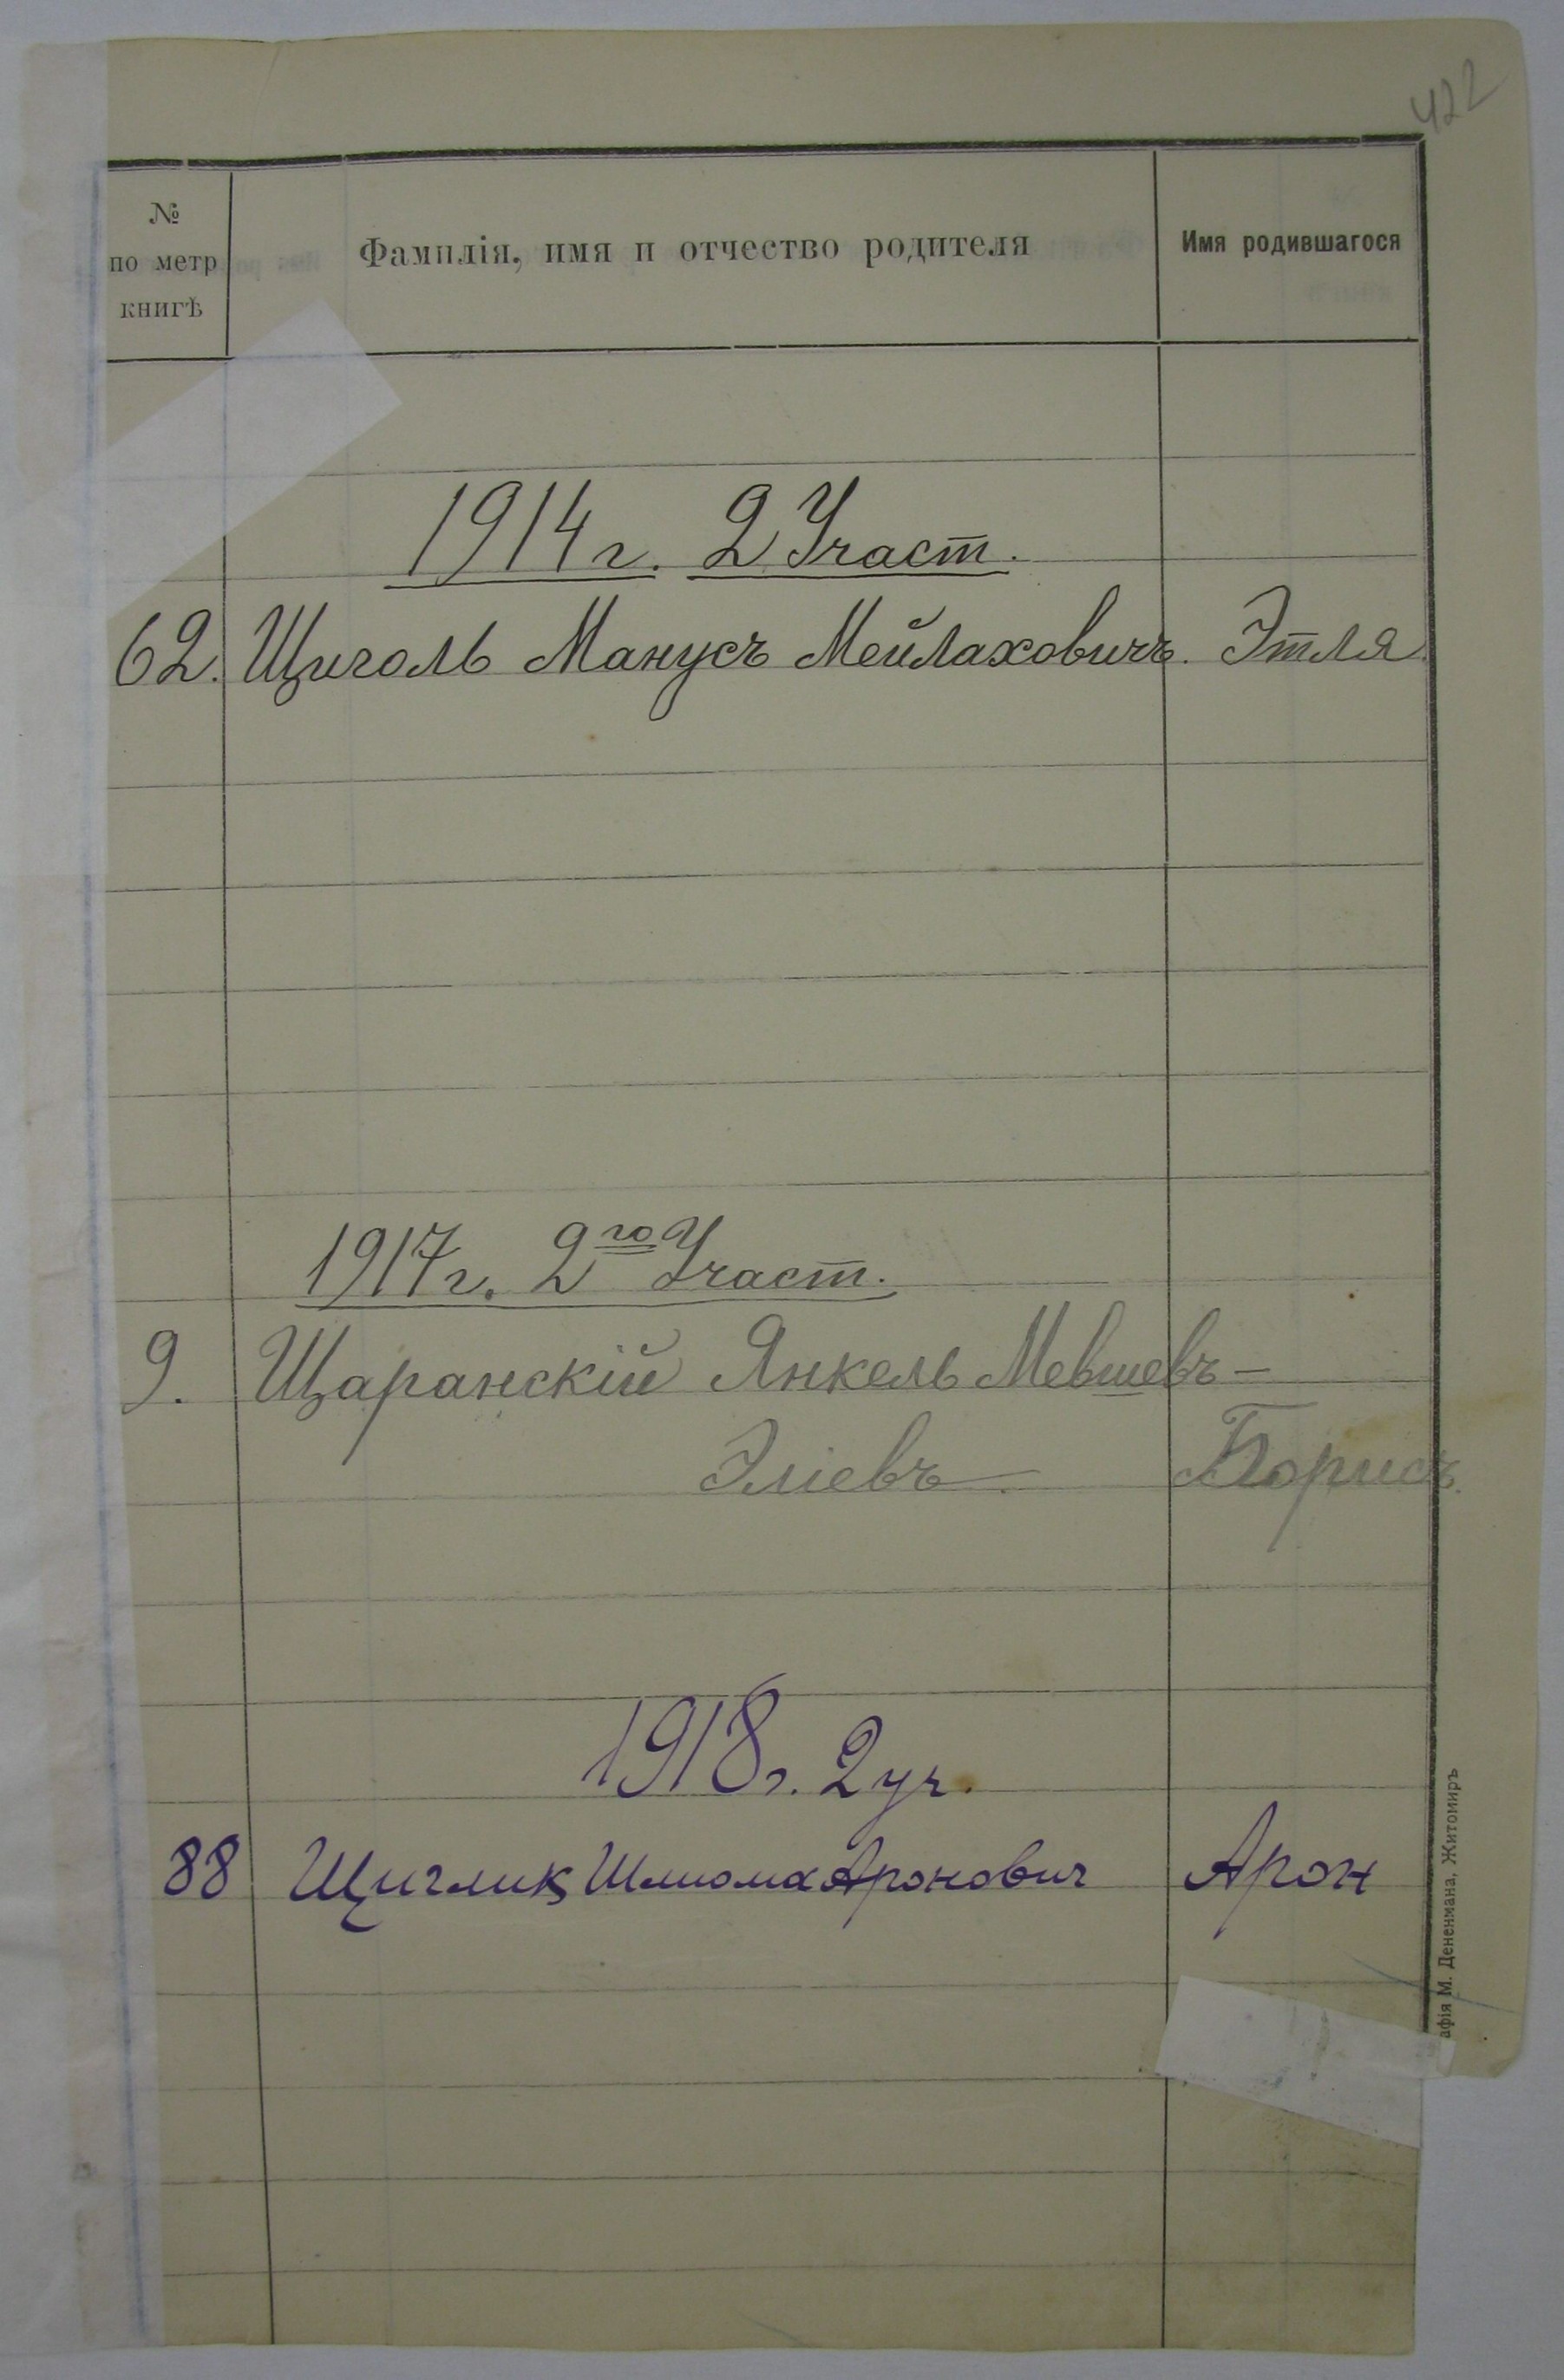 422
№
по метр
книгѣ
Фамилія, имя и отчество родителя
Имя родившагося
1914 г. 2 Участ.
62. Щиголь Манусъ Мейлаховичъ. Этля
1917 г. 2го Участ.
9. Щаранскій Янкель Мевшевъ-
Эліевъ Борисъ.
1918 г. 2 уч.
88 Щиглик Шлиома Аронович Арон
афія М. Дененмана, Житомиръ